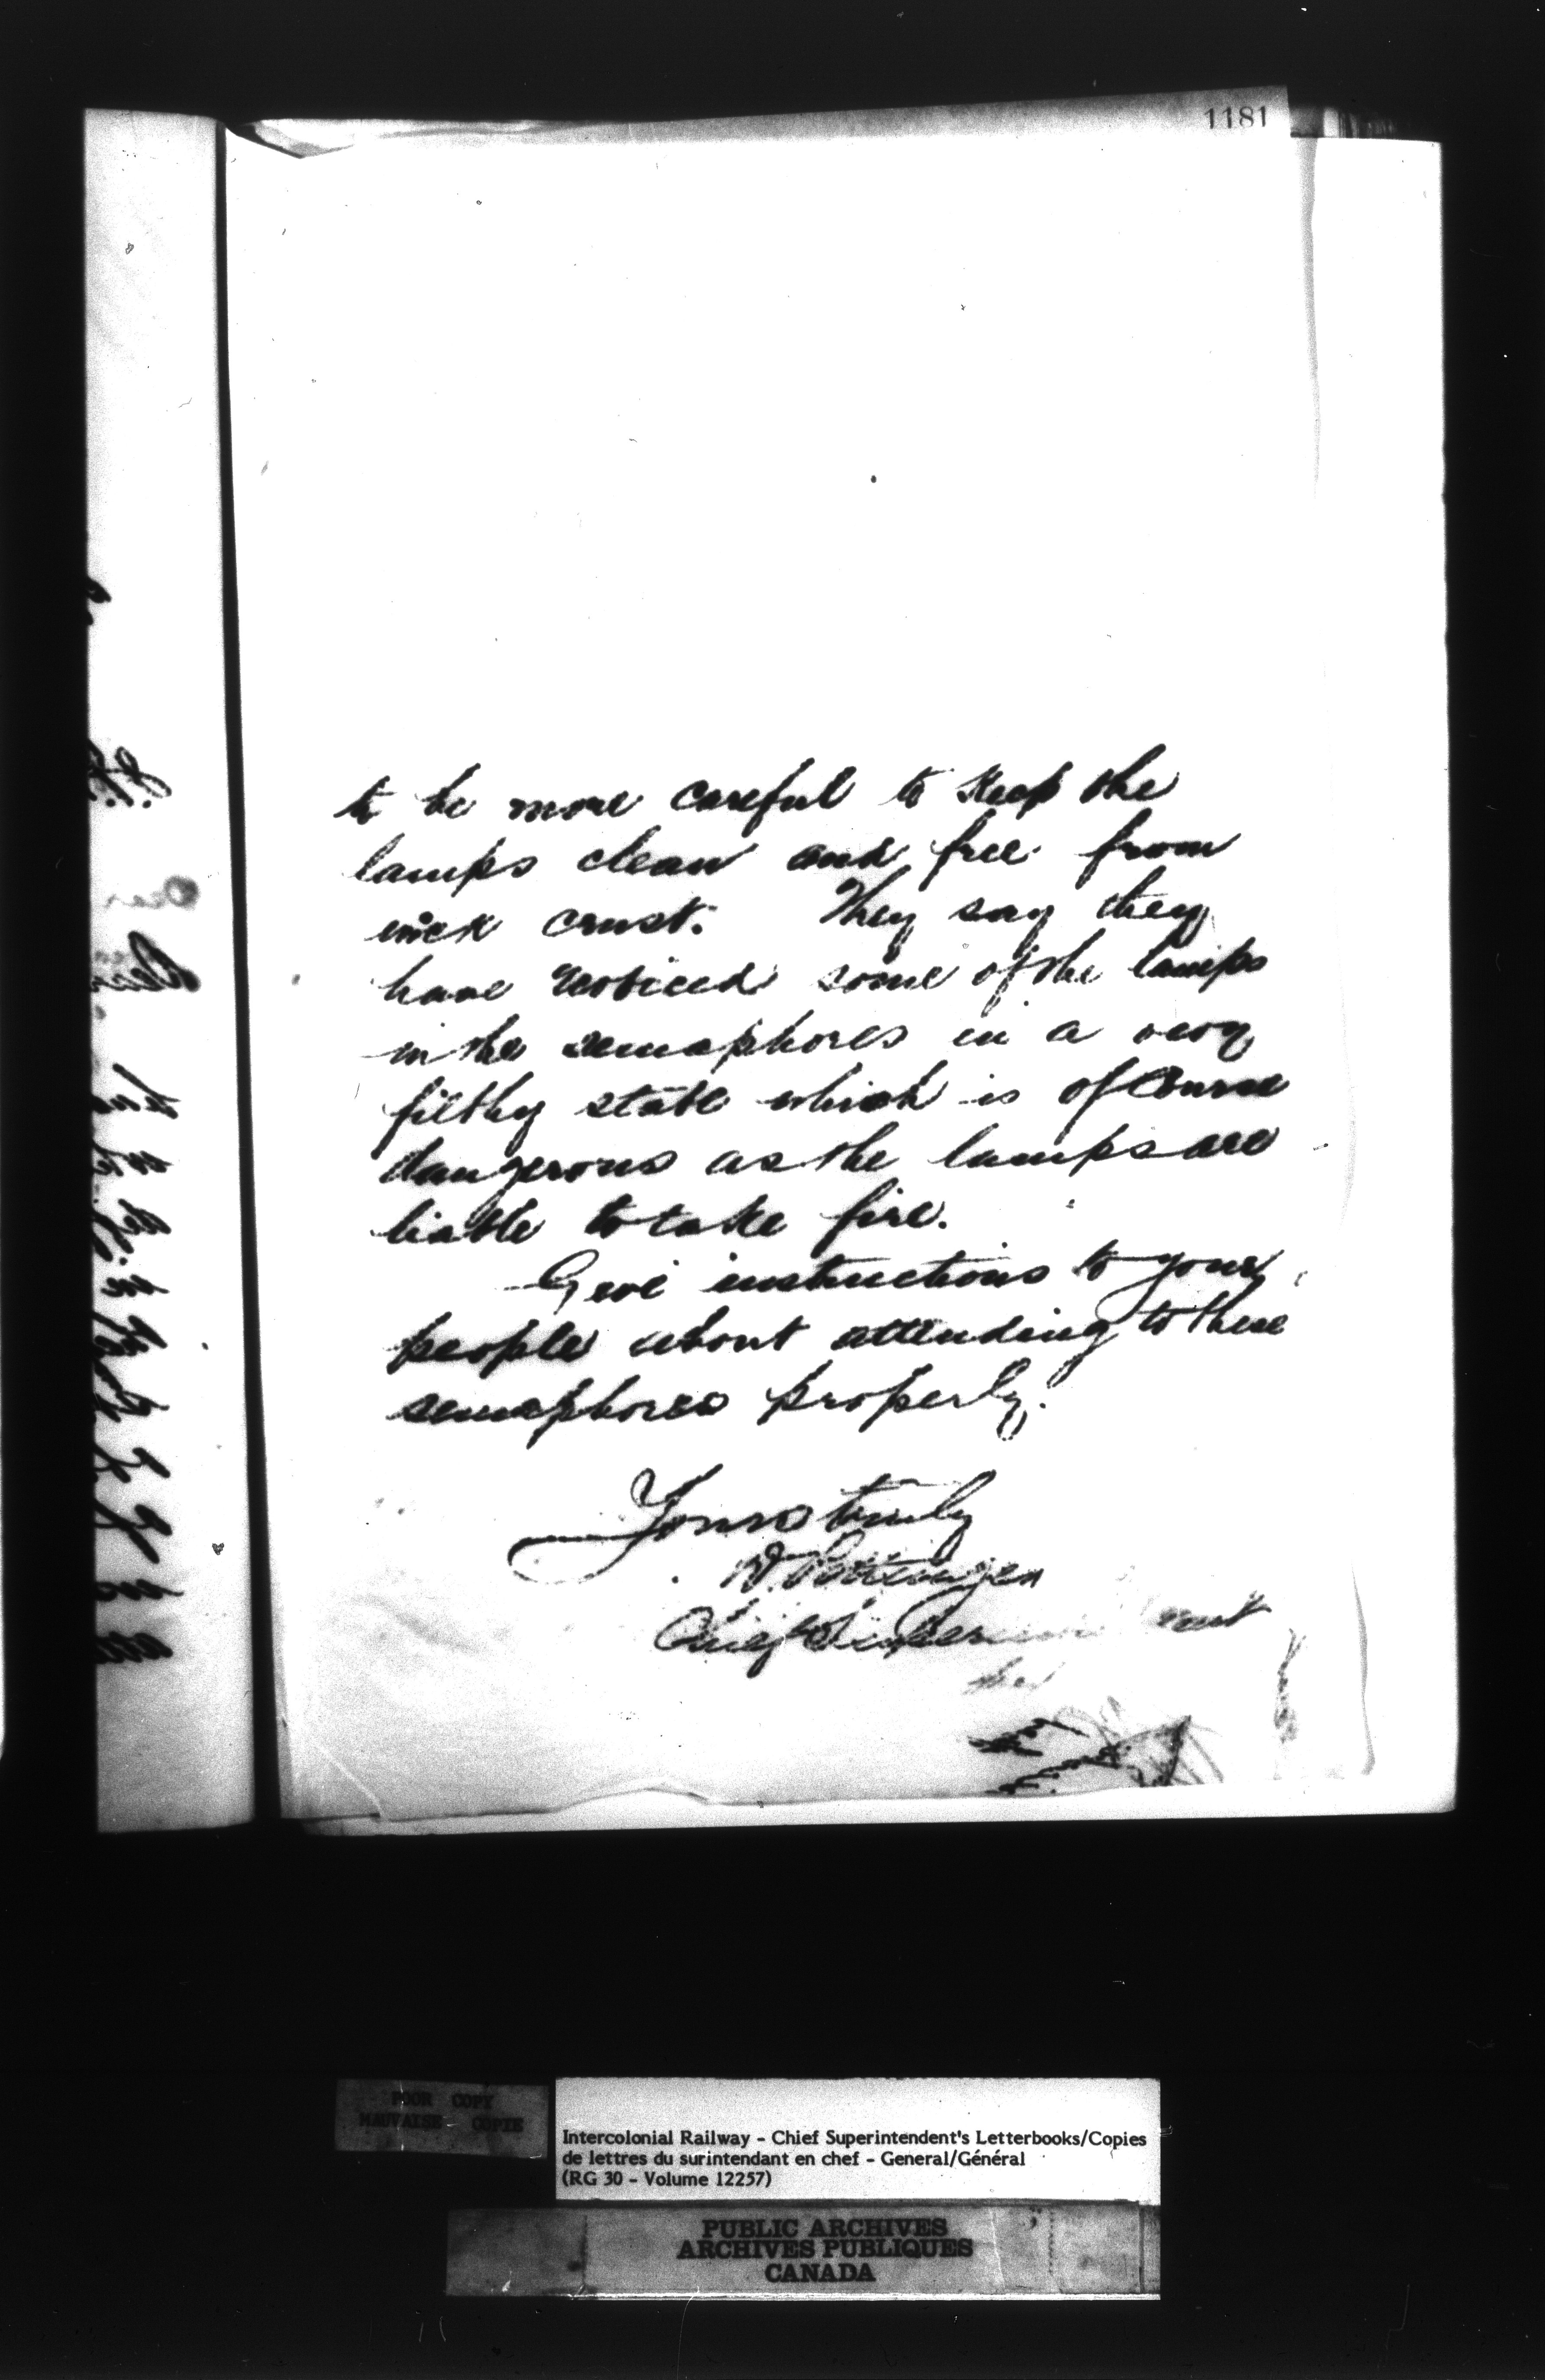 1181
to be more careful to keep the
lamps clean and free from
wick crust. They say they
have noticed some of the lamps
in the semaphores in a very
filthy state which is of course
dangerous as the lamps are
liable to take fire.
Give instructions to your
people about attending to these
semaphores properly.
Yours truly
D. Pottinger
Chief Superintendent
POOR COPY
MAUVAISE COPIE
Intercolonial Railway - Chief Superintendent's Letterbooks/Copies
de lettres du surintendant en chef - General/Général
(RG 30 - Volume 12257)
PUBLIC ARCHIVES
ARCHIVES PUBLIQUES
CANADA